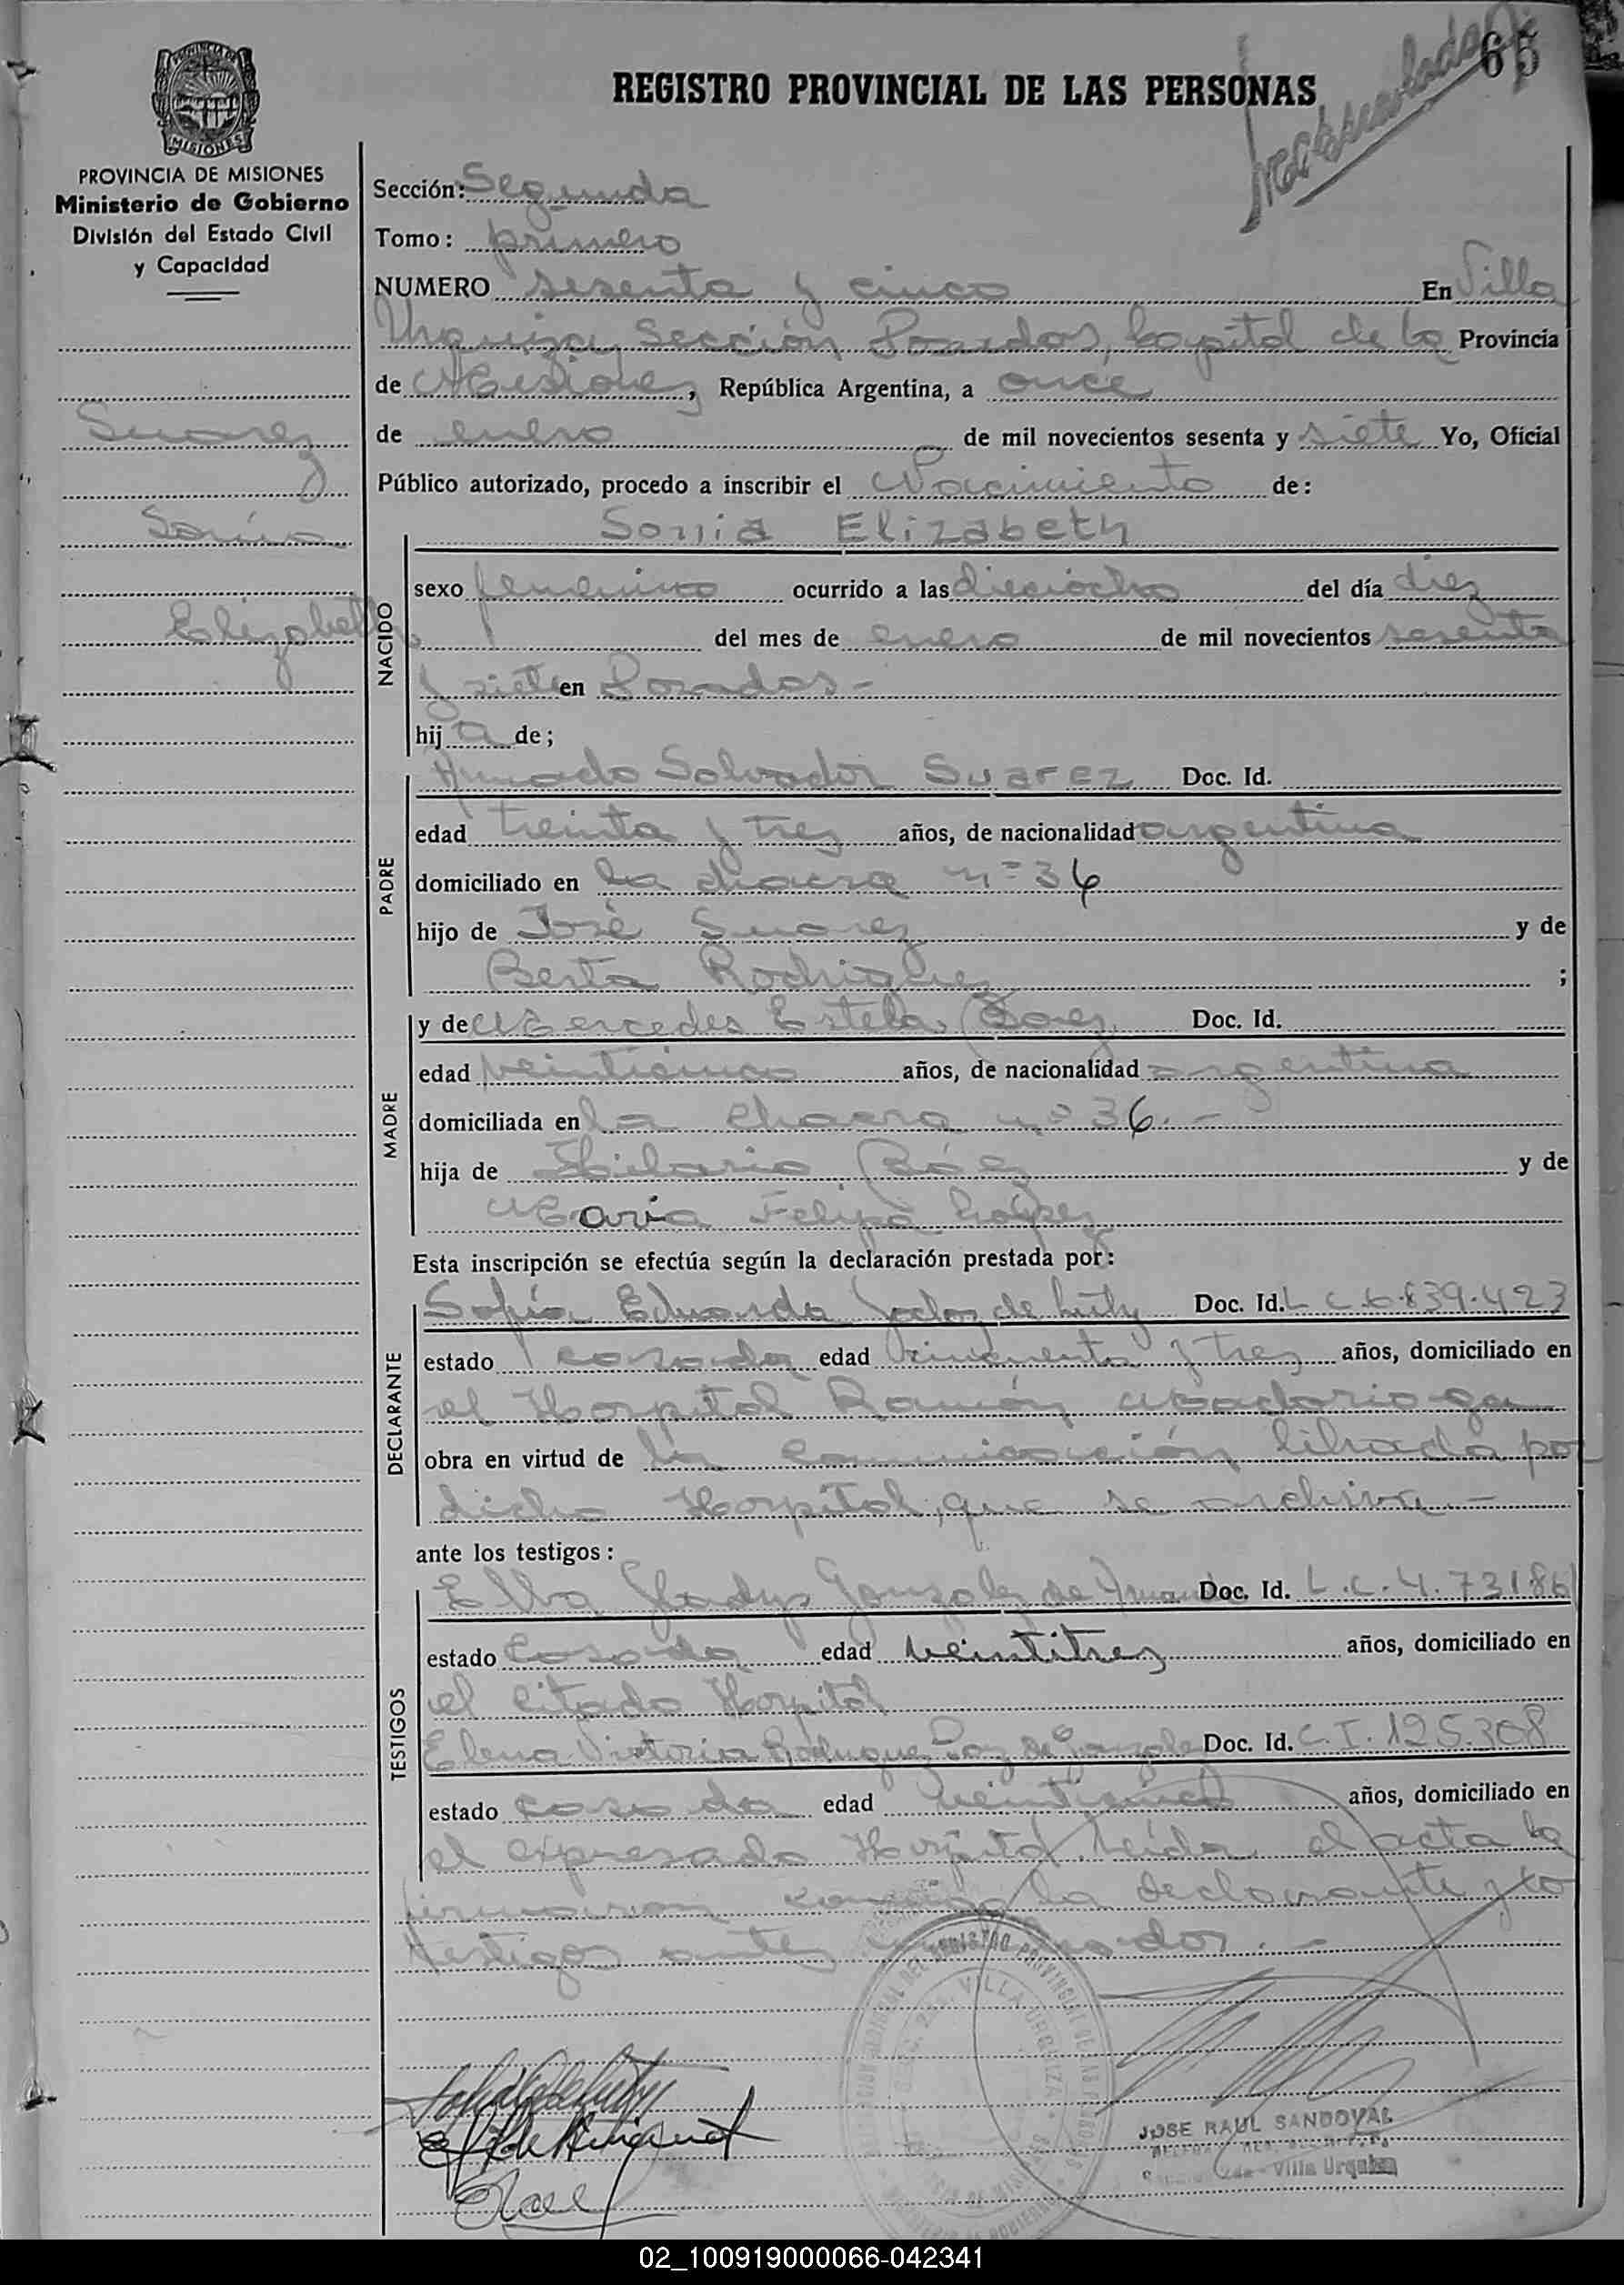 65
Matriculada
REGISTRO PROVINCIAL DE LAS PERSONAS
MISIONES
PROVINCIA DE MISIONES
Ministerio de Gobierno
División del Estado Civil
y Capacidad
Suarez
Sonia
Elizabeth
Sección: Segunda
Tomo: primero
NUMERO sesenta y cinco En Villa
Urquiza, Sección Posadas, Capital de la Provincia
de Misiones, República Argentina, a once
de enero de mil novecientos sesenta y siete Yo, Oficial
Público autorizado, procedo a inscribir el Nacimiento de:
NACIDO
Sonia Elizabeth
sexo femenino ocurrido a las dieciocho del día diez
del mes de enero de mil novecientos sesenta
y siete en Posadas-
hija de;
PADRE
Salvador Suarez Doc. Id.
edad treinta y tres años, de nacionalidad argentina
domiciliado en la chacra nº 36
hijo de José Suarez y de
Berta Rodriguez ;
MADRE
y de Mercedes Estela Baez Doc. Id.
edad veinticinco años, de nacionalidad argentina
domiciliada en la chacra nº 36.-
hija de Hilario Báez y de
Maria Felipa Lopez
Esta inscripción se efectúa según la declaración prestada por:
DECLARANTE
Sofía Eduarda de Doc. Id. L C 6.839.423
estado casada edad cincuenta y tres años, domiciliado en
el Hospital Ramón Madariaga
obra en virtud de la comunicación librada por
dicho Hospital, que se archiva-
ante los testigos:
TESTIGOS
Elba Gladys Gonzalez de Doc. Id. L.C.4.73186
estado casada edad veintitres años, domiciliado en
el citado Hospital
Elena Victoria Rodriguez Paz de Gonzalez Doc. Id. C.I. 125.308
estado casada edad veinticinco años, domiciliado en
el expresado Hospital. Leída el acta la
firmaron conmigo la declarante y los
testigos antes
VILLA URQUIZA
JOSE RAUL SANDOVAL
Villa Urquiza
02_100919000066-042341